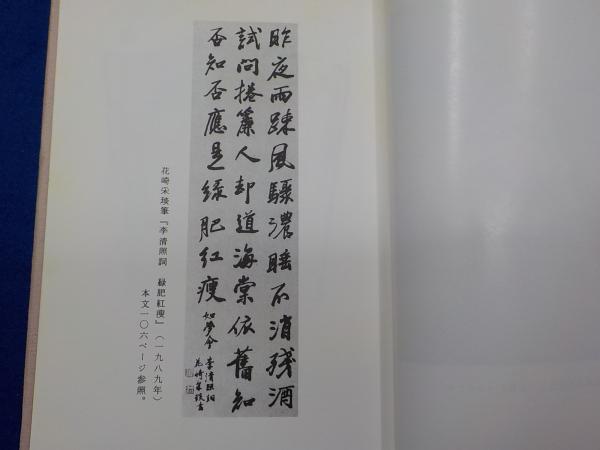 昨夜雨踈風驟濃睡不消殘酒
試問捲簾人却道海棠依舊知
否知否應是綠肥紅瘦
如夢令 李清照詞
花崎采琰書
花崎采琰筆『李清照詞 緑肥紅痩』(一九八九年)
本文一〇六ページ参照。